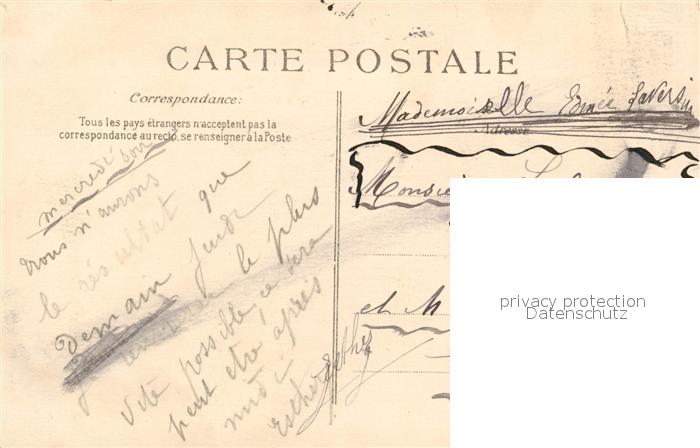 CARTE POSTALE
Correspondance:
Tous les pays étrangers n'acceptent pas la
correspondance au recto, se renseigner à la Poste
Mademoiselle
Adresse
Monsie
et M
mercredi soir
Nous n'aurons
le résultat que
demain jeudi
le plus
vite possible, ce sera
peut etre après
midi
privacy protection
Datenschutz